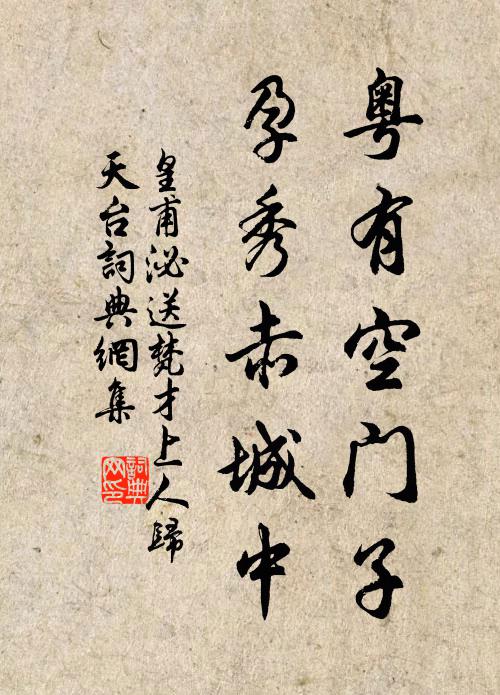 粵有空門子
孕秀赤城中
皇甫泌送梵才上人歸
天台詞典網集
詞典
网印